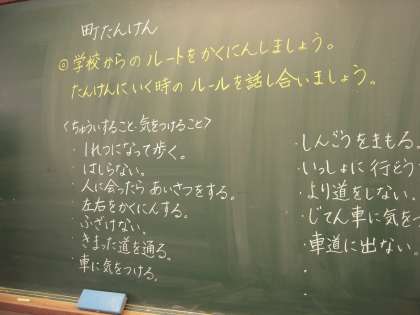 町たんけん
◎学校からのルートをかくにんしましょう。
たんけんにいく時のルールを話し合いましょう。
<ちゅういすること・気をつけること>
・1れつになって歩く。
・はしらない。
・人に会ったらあいさつをする。
・左右をかくにんする。
・ふざけない。
・きまった道を通る。
・車に気をつける。
・しんごうをまもる。
・いっしょに行どう
・より道をしない。
・じてん車に気を
・車道に出ない。